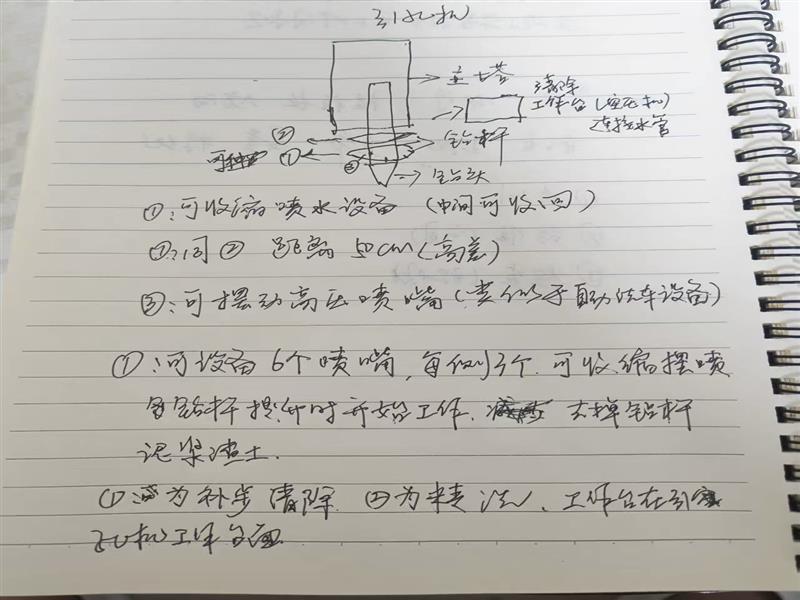 引孔机
主塔
清除
工作台(空压机)
连接水管
②
钻杆
可伸
①
③
钻头
①:可收缩喷水设备(中间可收回)
①:同② 距离50cm(高差)
③:可摆动高压喷嘴(类似于自动洗车设备)
①:可设备6个喷嘴,每侧3个.可收缩摆喷
钻杆提升时开始工作. 去掉钻杆
泥浆渣土.
① 为初步清除. ②为精洗、工作台在引
孔机工作台面